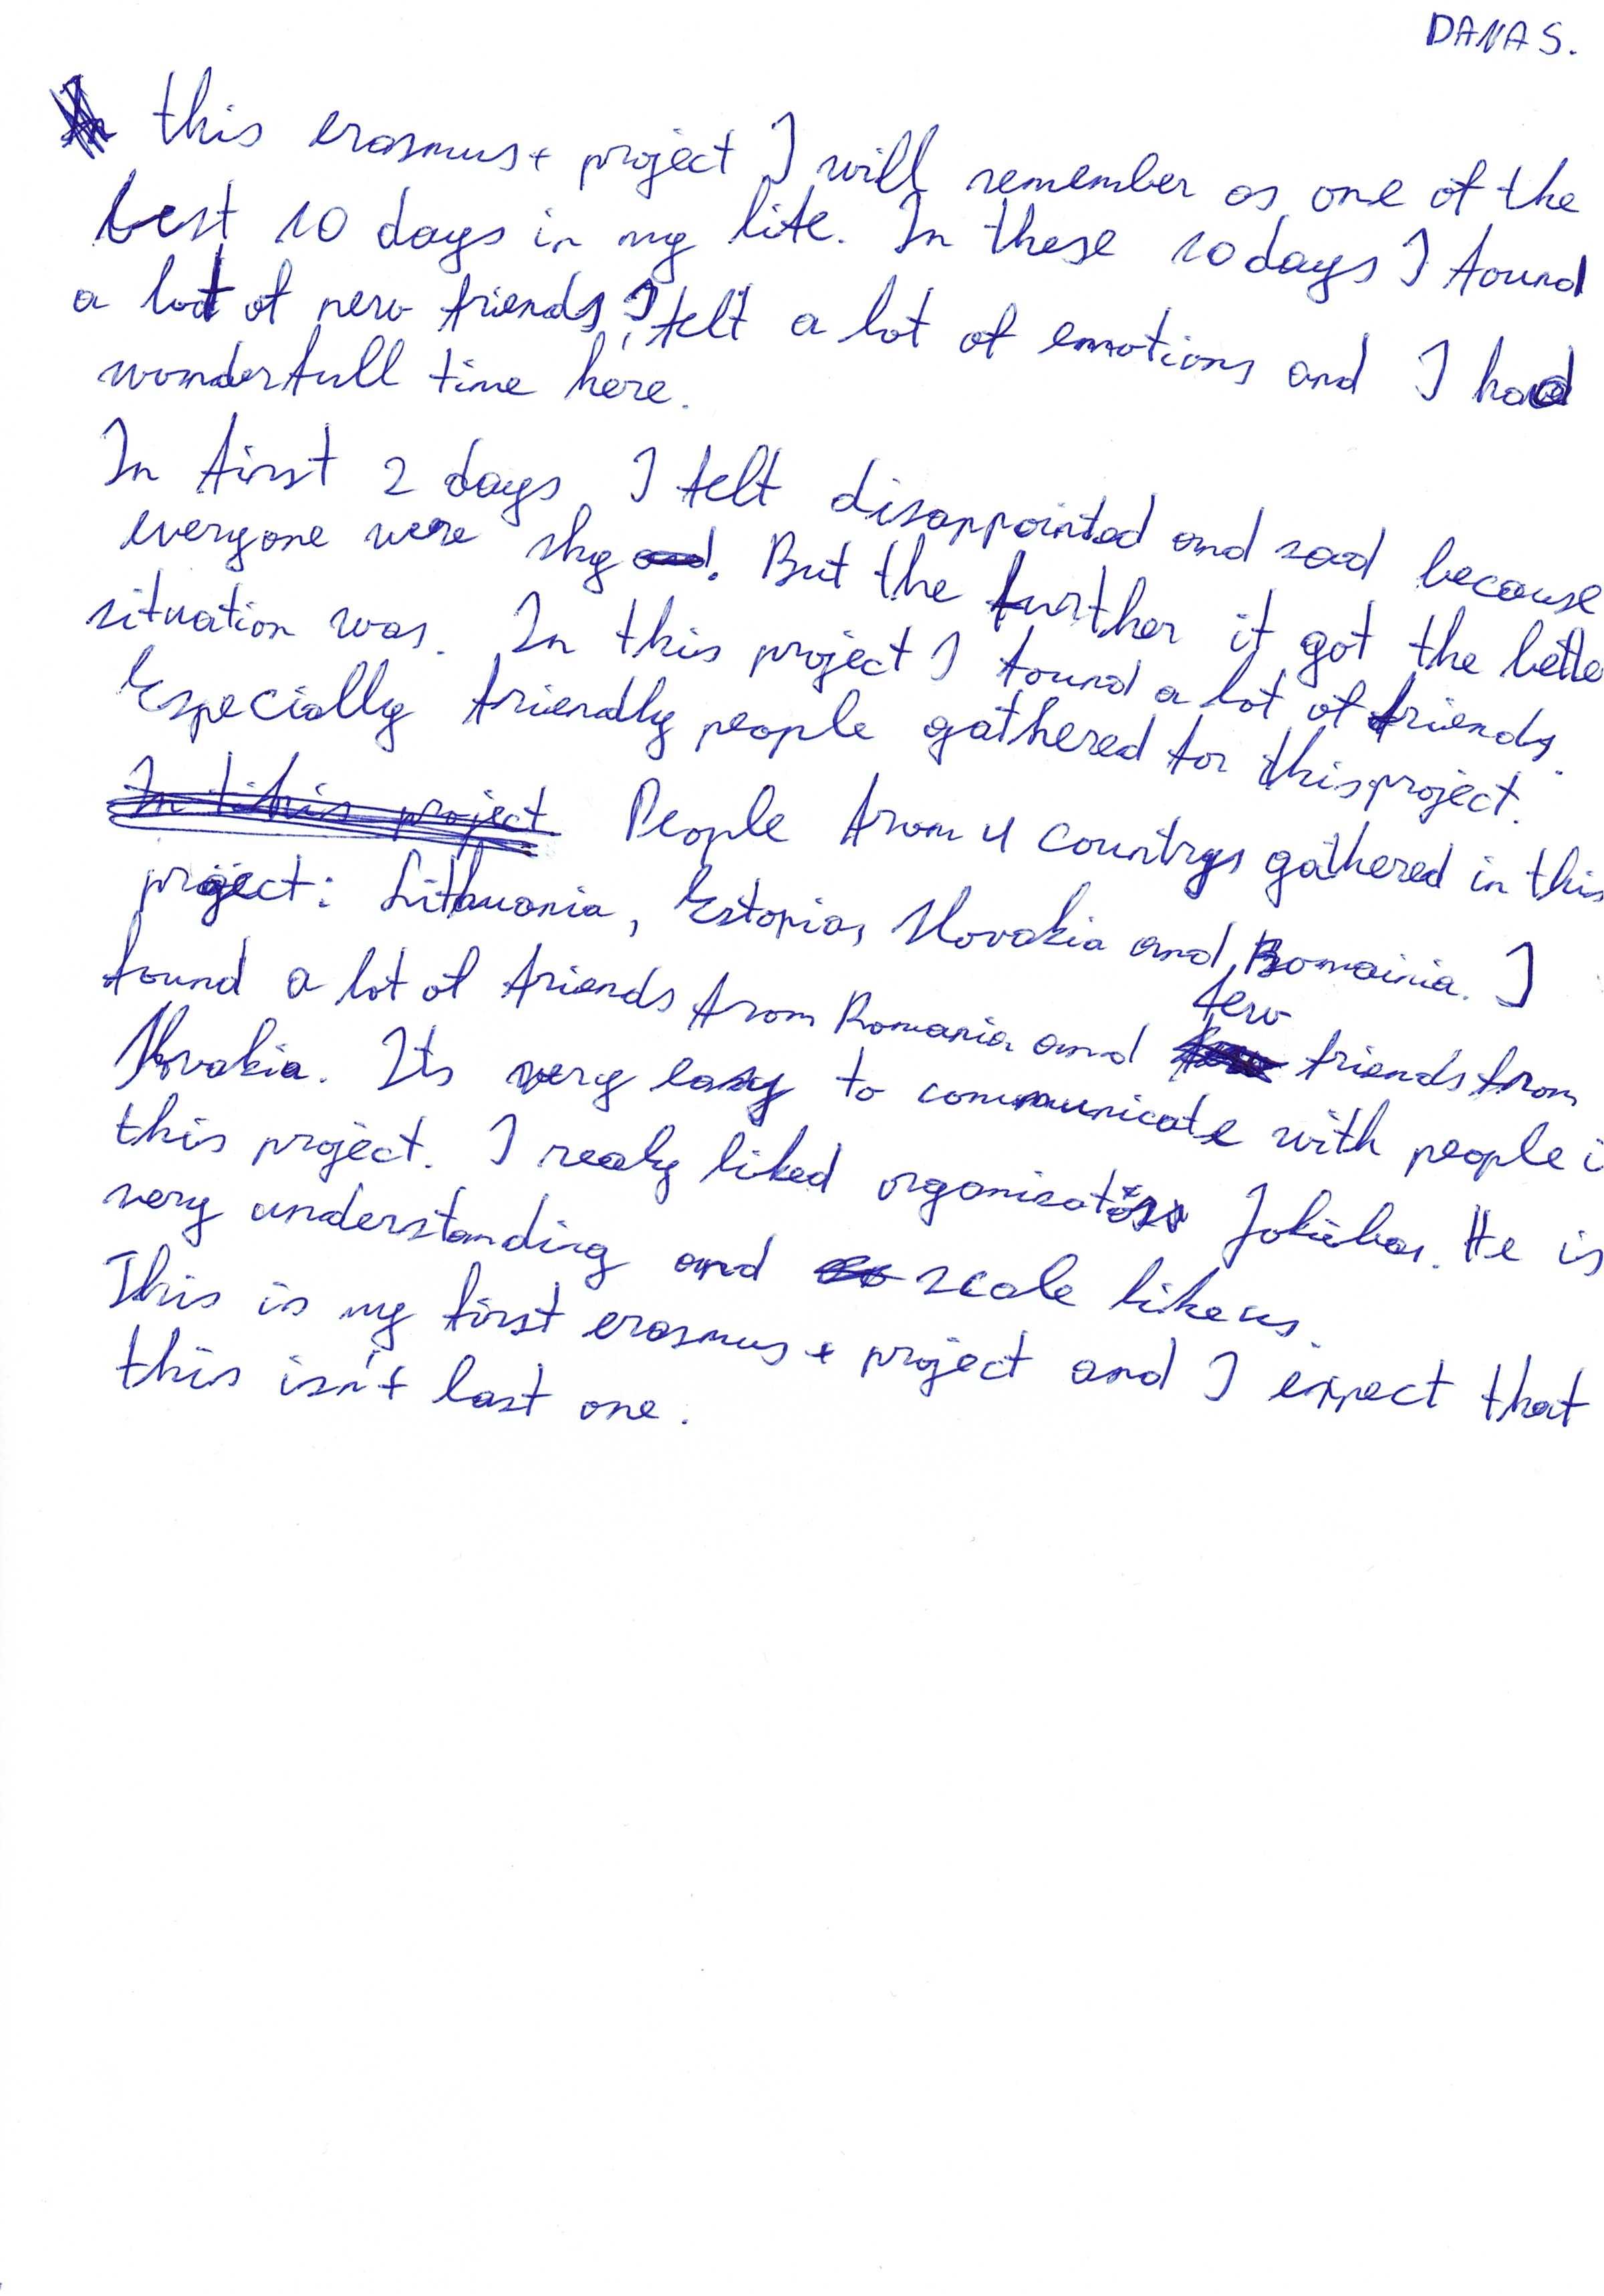 DANAS.
this erasmus+ project I will remember as one of the
best 10 days in my life. In these 10 days I found
a lot of new friends, I felt a lot of emotions and I had
wonderfull time here.
In first 2 days I felt disappointed and sad because
everyone were shy. But the further it got the bette
situation was. In this project I found a lot of friends.
Especially friendly people gathered for this project.
In this project People from 4 countrys gathered in this
project: Lithuania, Estonia, Slovakia and Romainia. I
found a lot of friends from Romania and few friends from
Slovakia. Its very easy to communicate with people i
this project. I realy liked organisators Jokūbas. He is
very understanding and like us.
This is my first erasmus+ project and I expect that
this isn't last one.